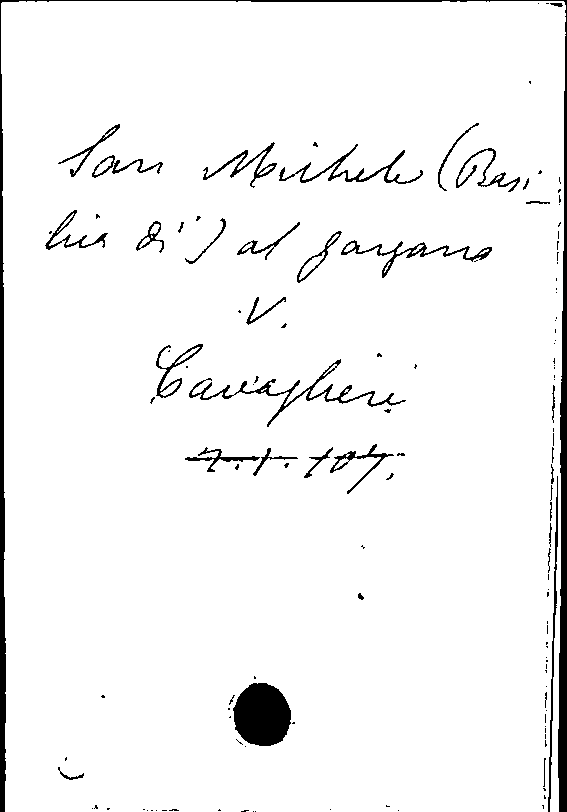 San Michele (Basi-
lica di) al Gargano
V.
Cavaglieri
7.1.107.